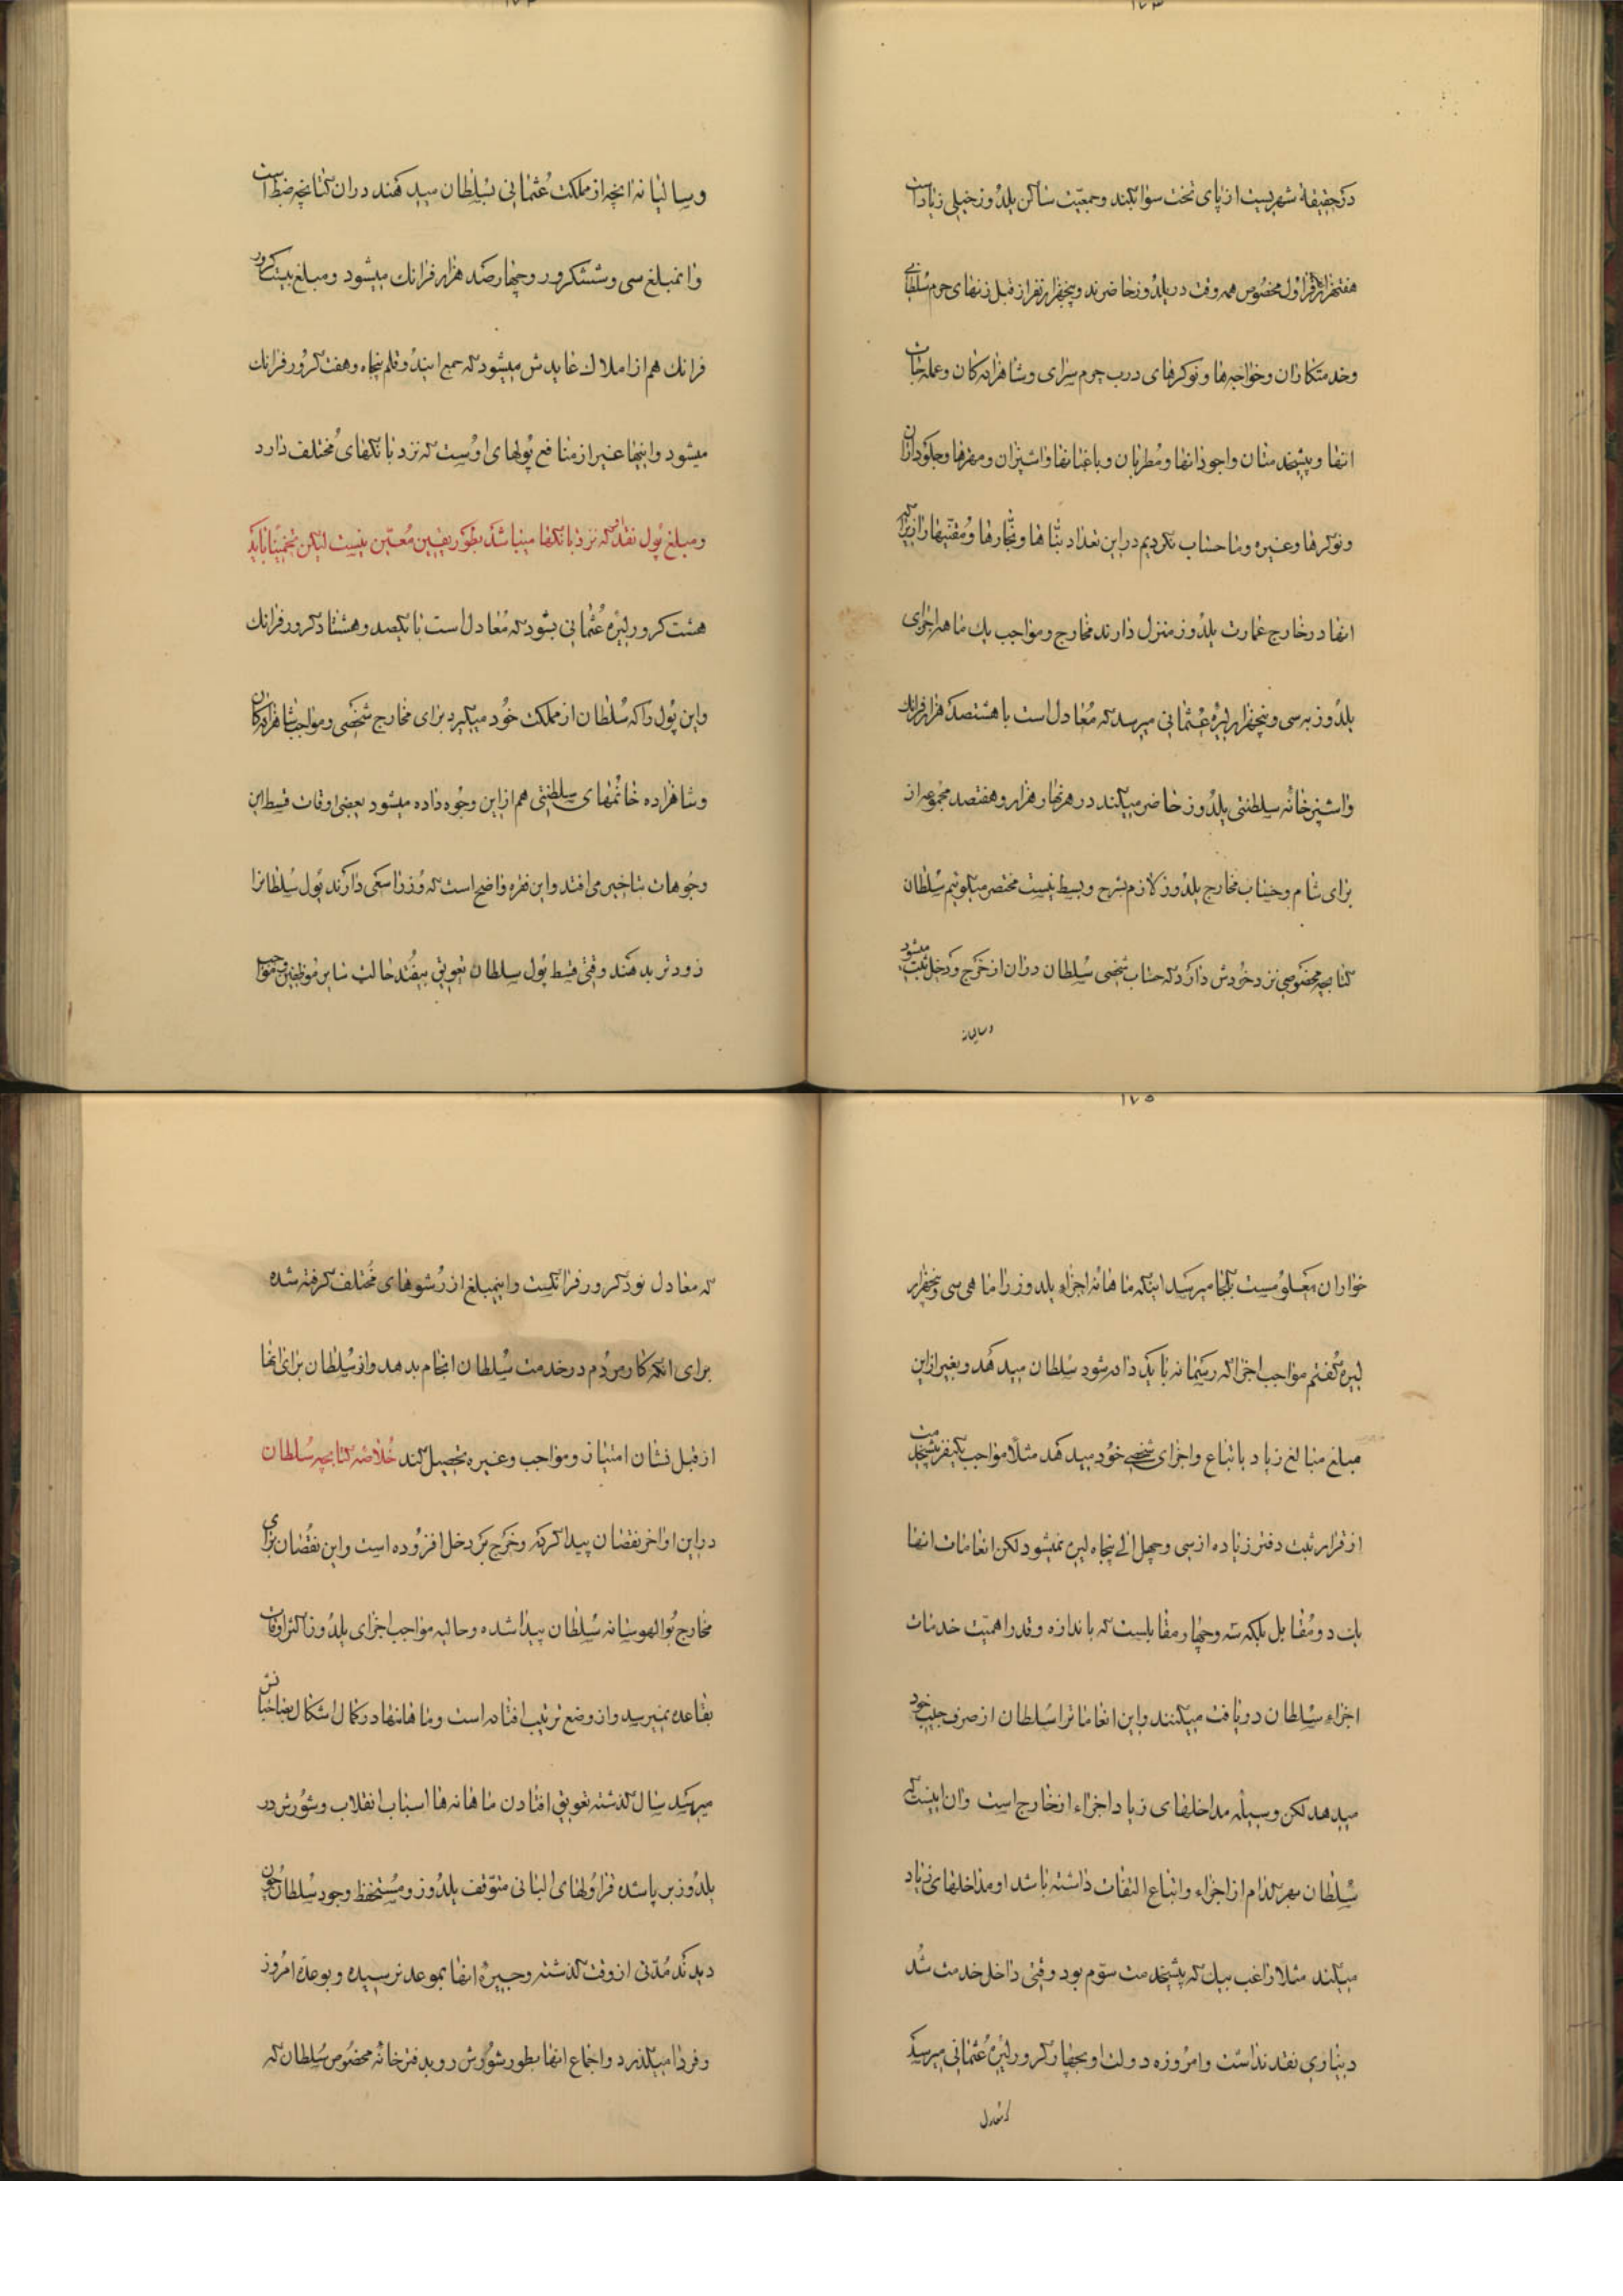 ۱۷۳
درحقیقة شهریست از پای تخت سوا میکند وجمعیت ساکن یلدوز خیلی زیاد است
هفتهزار نفر قراول مخصوص همه وقت در یلدوز حاضرند و پنجهزار نفر از قبیل زنهای حرم سلطانی
وخدمتکاران وخواجه‌ها ونوکرهای درب حرم سرای وشاهزاده‌کان وعمله‌جات
انها وپیشخدمتان واجودانها ومطربان وباغبانها واشپزان ومهترها وجلوداران
ونوکرها وغیره وما حساب نکردیم دراین تعداد بناها ونجارها ومقنیها را زیرا که
انها درخارج عمارت یلدوز منزل دارند مخارج ومواجب یک ماهه اجزای
یلدوز به سی وپنجهزار لیره عثمانی میرسد که معادل است با هشتصد هزار فرانک
واشپزخانه سلطنتی یلدوز حاضر میکند در هر نهار هزار وهفتصد مجموعه از
برای شام وحساب مخارج یلدوز لازم بشرح وبسط نیست مختصر میگوئیم سلطان
کتابچه مخصوصی نزد خودش دارد که حساب شخصی سلطان دران از خرج ودخل ثبت میشود
وسالیانه
وسالیانه انچه از مملکت عثمانی بسلطان میدهند دران کتابچه ضبط است
وانمبلغ سی وشش کرور وچهارصد هزار فرانک میشود ومبلغ بیست کرور
فرانک هم از املاک عایدش میشود که جمع ایندو قلم پنجاه وهفت کرور فرانک
میشود واینها غیر از منافع پولهای اوست که نزد بانکهای مختلف دارد
ومبلغ پول نقد او که نزد بانکها میباشد بطور یقیین معیّن نیست لیکن تخمینًا باید
هشت کرور لیره عثمانی بشود که معادل است با یکصد وهشتاد کرور فرانک
واین پول را که سلطان از مملکت خود میگیرد برای مخارج شخصی ومواجب شاهزاده‌کان
وشاهزاده خانمهای سلطنتی هم از این وجوه داده میشود بعضی اوقات قسط این
وجوهات بتاخیر می افتد واین فقره واضح است که وزرا سعی دارند پول سلطانرا
زودتر بدهند وقتی قسط پول سلطان بتعویق بیفتد حالت سایر موظفین ومواجب
۱۷۵
خواران معلومست بکجا میرسد اینکه ماهانه اجزاء یلدوز را ماهی سی وپنجهزار
لیره گفتم مواجب اجزا که رسمانه باید داده شود سلطان میدهد وبغیر ازاین
مبلغ مبالغ زیاد باتباع واجزای شخصی خود میدهد مثلًا مواجب یکنفر پیشخدمت
از قرار ثبت دفتر زیاده از سی وچهل الی پنجاه لیره نمیشود لکن انعامات انها
بات دومقابل بلکه سه وچهار مقابلست که باندازه وقدر اهمیت خدمات
اجزاء سلطان دریافت میکنند واین انعاماترا سلطان از صرف جیب خود
میدهد لکن وسیله مداخلهای زیاد اجزاء از خارج است وان اینست که
سلطان بهرکدام از اجزاء واتباع التفات داشته باشد او مداخلهای زیاد
میکند مثلا راغب بیک که پیشخدمت سوّم بود وقتی داخل خدمت شد
دیناری نقد نداشت وامروزه دولت او بچهار کرور لیره عثمانی میرسد
که معادل
که معادل نود کرور فرانکست واینمبلغ از رشوهای مختلف گرفته شده
برای انکه کار مردم درخدمت سلطان انجام بدهد واز سلطان برای انها
از قبل نشان امتیاز ومواجب وغیره تحصیل کند خلاصه کتابچه سلطان
دراین اواخر نقصان پیدا کرده وخرج بر دخل افزوده است واین نقصان برای
مخارج بوالهوسانه سلطان پیدا شده وحالیه مواجب اجزای یلدوز اکثر اوقات
بقاعده نمیرسد واز وضع ترتیب افتاده است وماهانه‌ها درکمال اشکال بصاحبانش
میرسد سال گذشته تعویق افتادن ماهانه‌ها اسباب انقلاب وشورش در
یلدوز بر پا شده قراولهای البانی متوقف یلدوز ومستحفظ وجود سلطان چون
دیدند مدتی از وقت گذشته وجیره انها بموعد نرسیده وبوعده امروز
وفردا میگذرد واجماع انها بطور شورش رو بدفترخانه مخصوص سلطان که